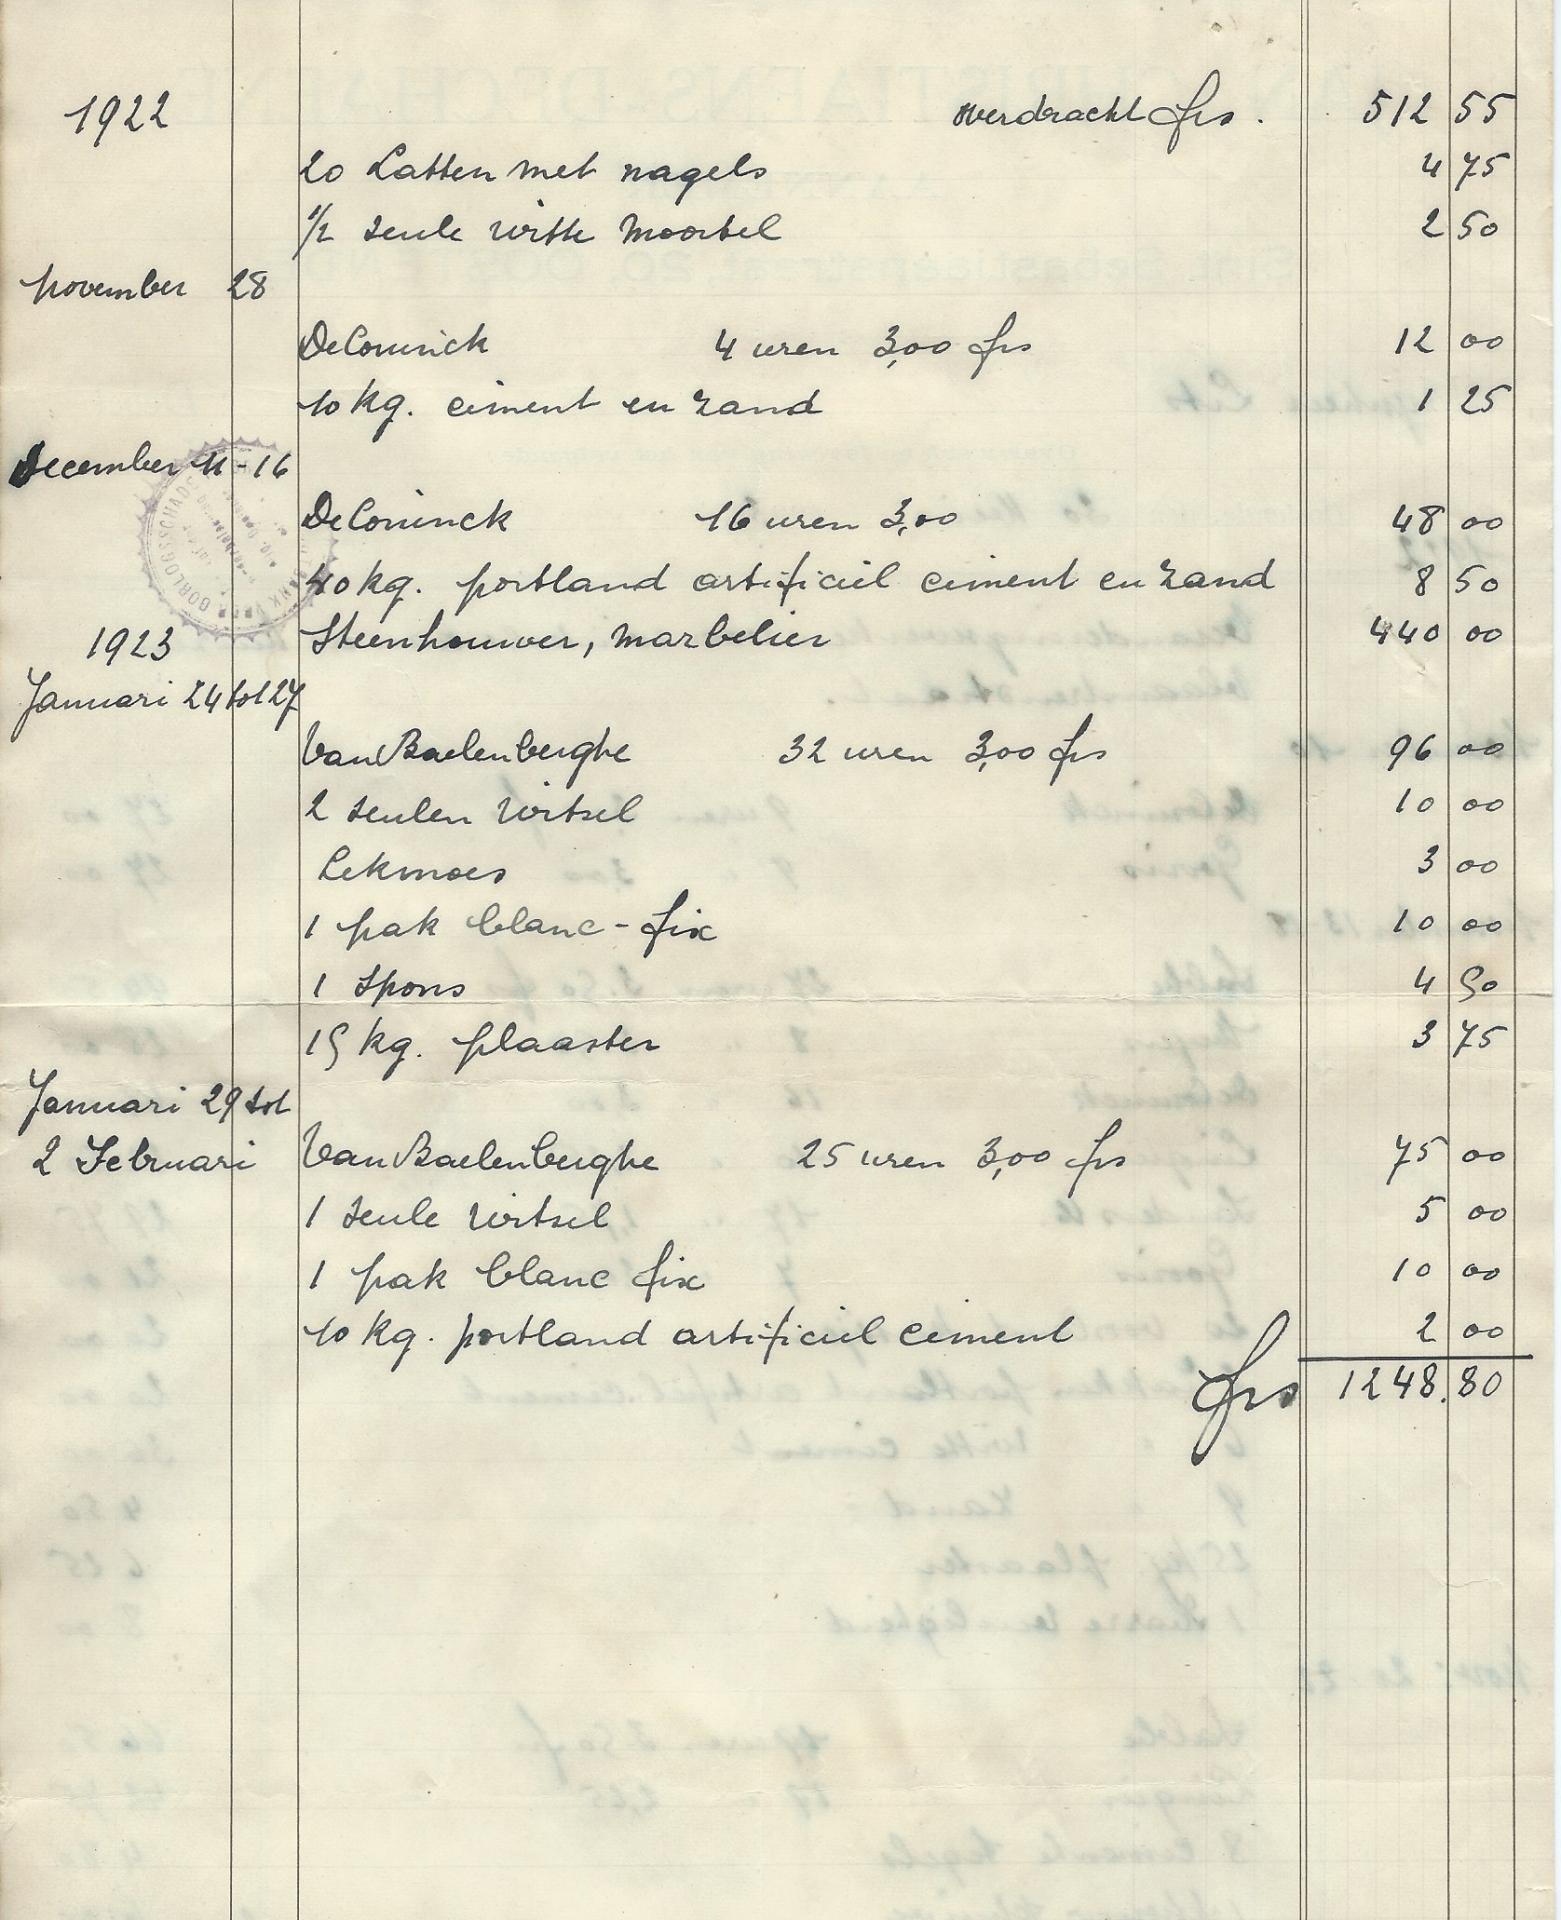 1922 overdracht frs. 512 55
20 Latten met nagels 4 75
1/2 seule witte moortel 2 50
november 28
DeConinck 4 uren 3,00 frs 12 00
10 kg. ciment en zand 1 25
December 11-16
DeConinck 16 uren 3,00 48 00
40 kg. portland artificiel ciment en zand 8 50
Steenhouwer, marbelier 440 00
1923
Januari 24 tot 27
VanBaelenberghe 32 uren 3,00 frs 96 00
2 seulen witsel 10 00
Lekmoes 3 00
1 pak blanc-fix 10 00
1 spons 4 50
15 kg. plaaster 3 75
Januari 29 tot
2 Februari VanBaelenberghe 25 uren 3,00 frs 75 00
1 seule witsel 5 00
1 pak blanc fix 10 00
10 kg. portland artificiel ciment 2 00
frs 1248.80